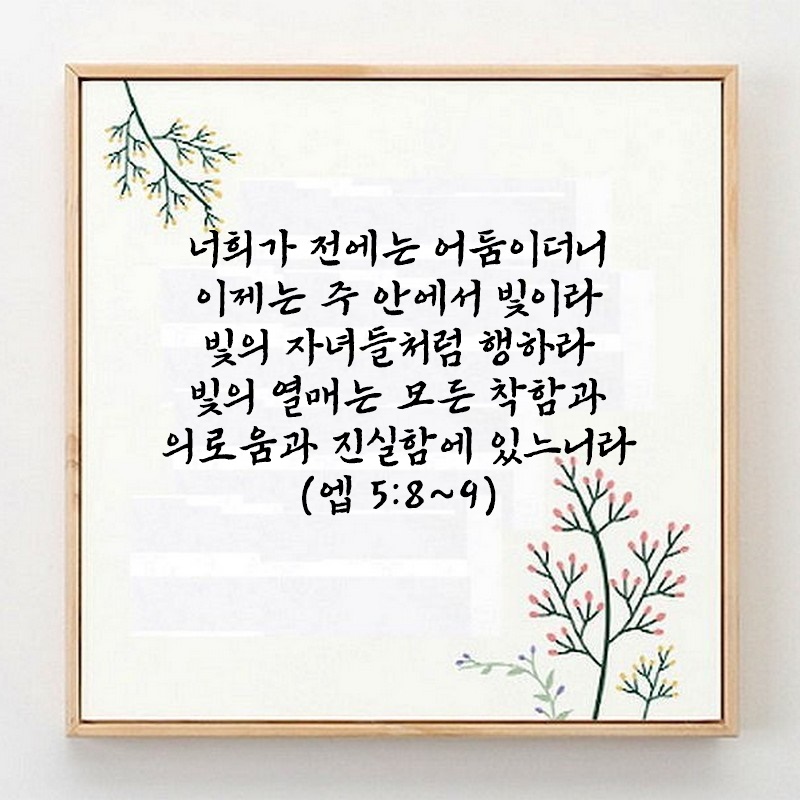 너희가 전에는 어둠이더니
이제는 주 안에서 빛이라
빛의 자녀들처럼 행하라
빛의 열매는 모든 착함과
의로움과 진실함에 있느니라
(엡 5:8~9)